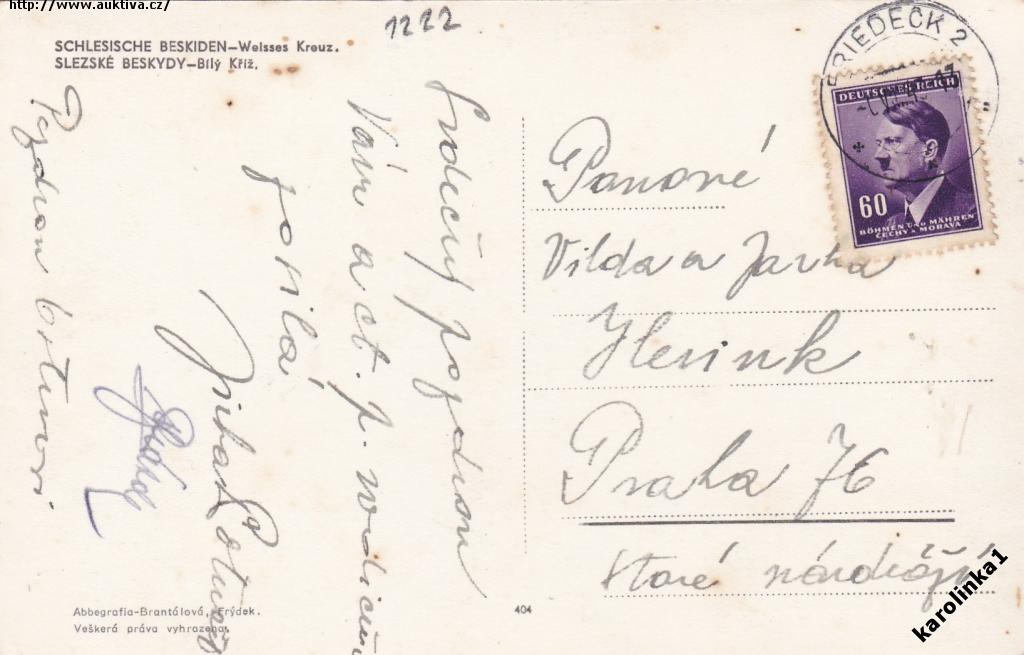 http://www.auktiva.cz/
1222
SCHLESISCHE BESKIDEN–Weisses Kreuz.
SLEZSKÉ BESKYDY–Bílý Kříž.
Srdečný pozdrav
Vám a ct. p. rodičům
posílá
Pozdrav bratrovi
Abbegrafia-Brantálová, Frýdek.
Veškerá práva vyhrazena.
404
FRIEDECK 2
DEUTSCHES REICH
60
BÖHMEN UND MÄHREN
ČECHY A MORAVA
Panové
Vilda a Jarka
Herink
Praha 76
staré nádraží
karolinka1